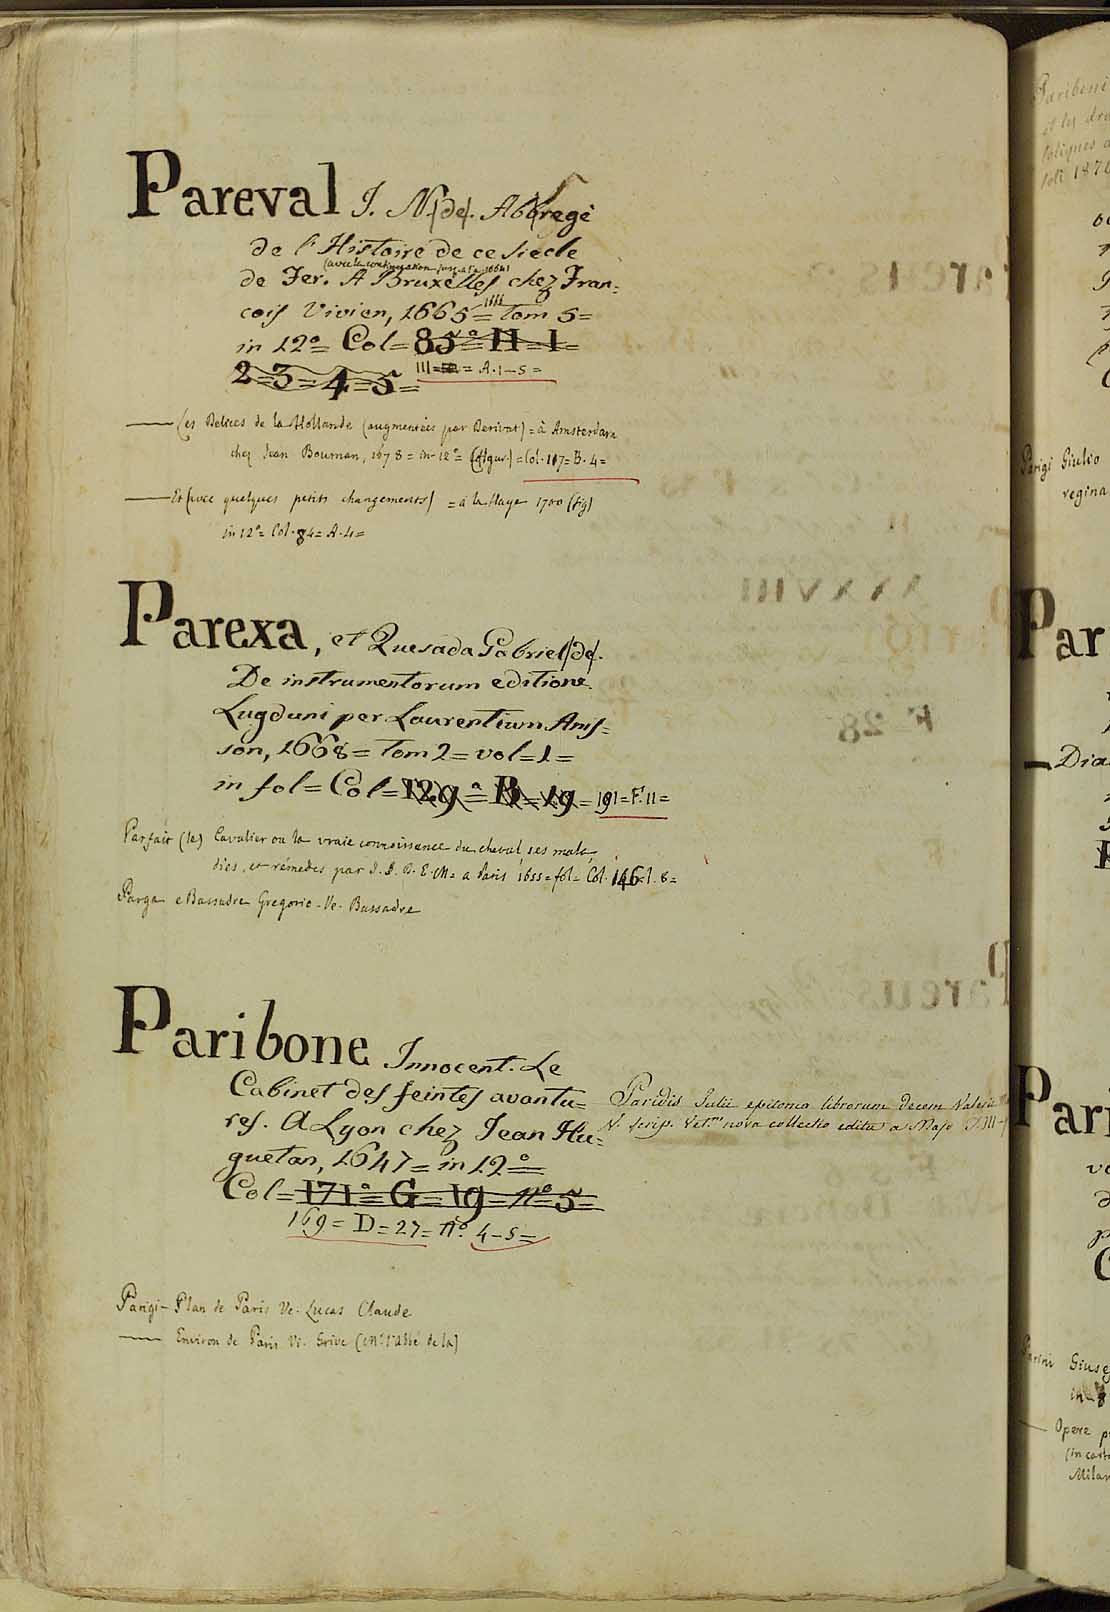 Pareval J. N. (de). Abbregè
de l'Histoire de ce siecle
(avec la continuation jusq'à l'a. 1664)
de Fer. A Bruxelles chez Fran=
cois Vivien, 1665= Tom 5=
in 12º= Col= 85º= H= 1=
2= 3= 4= 5= III= = A. 1-5=
Les Delices de la Hollande (augmentées par Berivat) = à Amsterdam
chez Jean Bouman, 1678= in-12º= (figur.) = Col. 117= B. 4=
Et (avec quelques petits changements) = à la Haye 1700 (fig)
in 12º= Col. 84= A. 4=
Parexa, et Quesada Gabriel (de).
De instrumentorum editione.
Lugduni per Laurentium Ans=
son, 1668= Tom 2= vol= 1=
in fol= Col= 129º= B= 19= 191= F. 11=
Parfait (le) Cavalier ou la vraie connoissance du cheval ses mala=
dies, et rémedes par J. J. D. E. M= a Paris 1655= fol= Col. 146= 1. 8=
Parga e Bassadre Gregorio - Ve. Bassadre
Paribone Innocent. Le
Cabinet des feintes avantu=
res. A Lyon chez Jean Hu=
guetan, 1647= in 12º=
Col= 171º= G= 19= nº 5=
169= D= 27= nº 4-5=
Paridis Julii epitoma librorum decem Valerii
V. Scrip. Vet.m nova collectio edita a Majo T. III
Parigi - Plan de Paris Ve. Lucas Claude
Environ de Paris Ve. Grive (mr. l'abbé de la)
Paribeni
Parigi Giulio
regina
Par
Dia
Pari
Parini Giuse
in-8
Opere
Milan